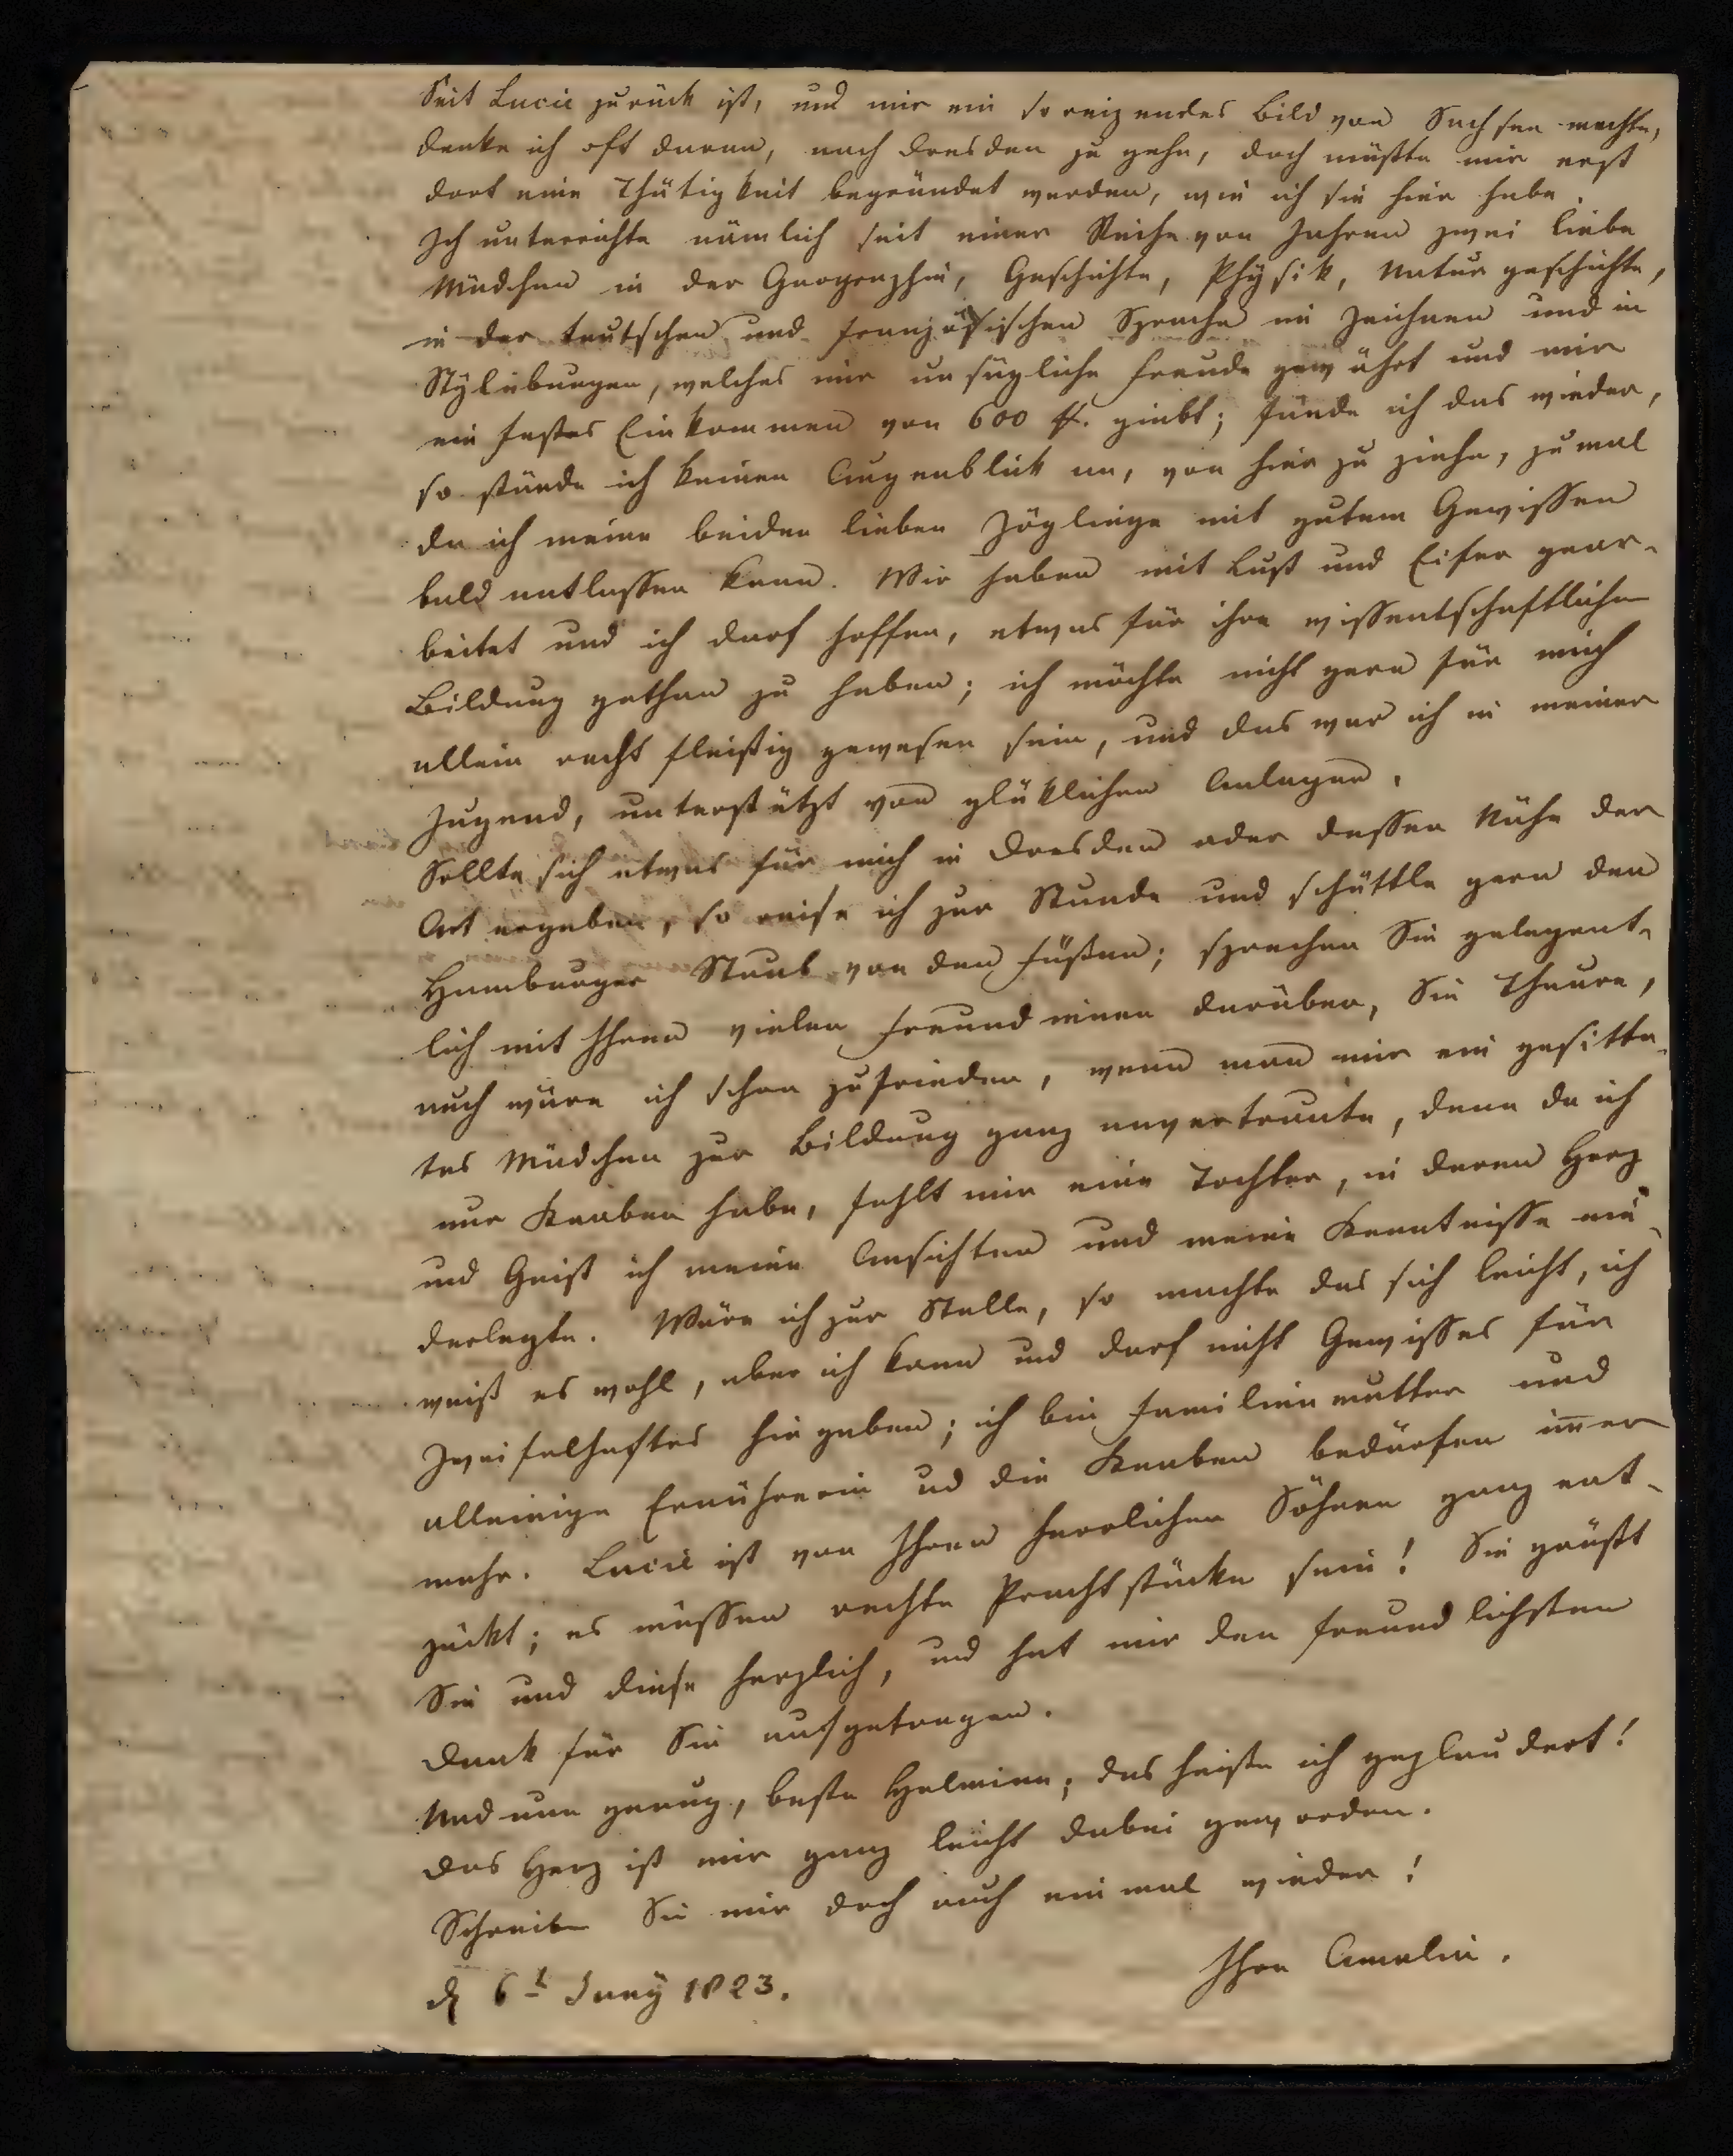 Seit Lucie zurück ist, und mir ein so reizendes Bild von Sachsen machte,
denke ich oft daran, nach Dresden zu gehn, doch müßte mir erst
dort eine Thätigkeit begründet werden, wie ich sie hier habe.
Ich unterrichte nämlich seit einer Reihe von Jahren zwei liebe
Mädchen in der Geographie, Geschichte, Physik, Naturgeschichte,
in der teutschen und französischen Sprache im Zeichnen und in
Stylübungen, welches mir unsägliche Freude gewährt und mir
ein festes Einkommen von 600 giebt; fände ich das wieder,
so stünde ich keinen Augenblick an, von hier zu ziehn, zumal
da ich meine beiden lieben Zöglinge mit gutem Gewissen
bald entlassen kann. Wir haben mit Lust und Eifer gear-
beitet und ich darf hoffen, etwas für ihre wissentschaftliche
Bildung gethan zu haben; ich möchte nicht gern für mich
allein recht fleißig gewesen sein, und das war ich in meiner
Jugend, unterstützt von glüklichen Anlagen.
Sollte sich etwas für mich in Dresden oder dessen Nähe der
Art ergeben, so reise ich zur Stunde und schüttle gern den
Hamburger Staub von den Füßen; sprechen Sie gelegent-
lich mit Ihren vielen Freundinnen darüber, Sie Theure,
auch wäre ich schon zufrieden, wenn man mir ein gesitte-
tes Mädchen zur Bildung ganz anvertraute, denn da ich
nur Knaben habe, fehlt mir eine Tochter, in deren Herz
und Geist ich meine Ansichten und meine Kenntnisse nie-
derlegte. Wäre ich zur Stelle, so machte das sich leicht, ich
weiß es wohl, aber ich kann und darf nicht Gewisses für
Zweifelhaftes hingeben; ich bin Familienmutter und
alleinige Ernährerin ud die Knaben bedürfen im̄er
mehr. Lucie ist von Ihren herrlichen Söhnen ganz ent-
zückt; es müssen rechte Prachtstücke sein! Sie grüßt
Sie und diese herzlich, und hat mir den freundlichsten
Dank für Sie aufgetragen.
Und nun genug, beste Helmina; das heiße ich geplaudert!
Das Herz ist mir ganz leicht dabei geworden.
Schreiben Sie mir doch auch einmal wieder!
Ihre Amalie.
d 6t Juny 1823.